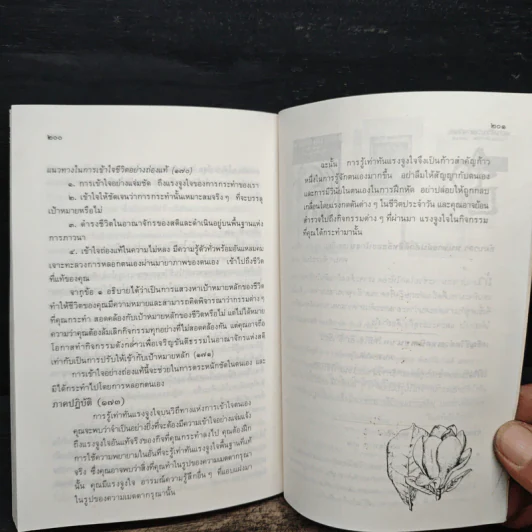 ๒๐๐
แนวทางในการเข้าใจชีวิตอย่างถ่องแท้ (๑๗๐)
๑. การเข้าใจอย่างแจ่มชัด ถึงแรงจูงใจของการกระทำของเรา
๒. เข้าใจให้ชัดเจนว่าการกระทำนั้นเหมาะสมจริง ๆ ที่จะบรรลุ
เป้าหมายหรือไม่
๓. ดำรงชีวิตในอาณาจักรของสติและดำเนินอยู่บนพื้นฐานแห่ง
การภาวนา
๔. เข้าใจถ่องแท้ในความไม่หลง มีความรู้ตัวทั่วพร้อมอันแหลมคม
เจาะทะลวงการหลอกตนเองผ่านมายาภาพของตนเอง เข้าไปถึงชีวิต
ที่แท้ของคุณ
จากข้อ ๑ อธิบายได้ว่าเป็นการแสวงหาเป้าหมายหลักของชีวิต
ทำให้ชีวิตของคุณมีความหมายและสามารถคิดพิจารณาว่ากรรมต่าง ๆ
ที่คุณกระทำ สอดคล้องกับเป้าหมายหลักของชีวิตหรือไม่ แต่ไม่ได้หมาย
ความว่าคุณต้องล้มเลิกกิจกรรมทุกอย่างที่ไม่สอดคล้องกัน แต่คุณอาจถือ
โอกาสทำกิจกรรมดังกล่าวเพื่อเจริญขันติธรรมในอาณาจักรแห่งสติ
เท่ากับเป็นการปรับให้เข้ากับเป้าหมายหลัก (๑๗๑)
การเข้าใจอย่างถ่องแท้นี้จะช่วยในการตระหนักชัดในตนเอง และ
มิได้กระทำไปโดยการหลอกตนเอง
ภาคปฏิบัติ (๑๗๓)
การรู้เท่าทันแรงจูงใจบนวิถีทางแห่งการเข้าใจตนเอง
คุณจะพบว่าจำเป็นอย่างยิ่งที่จะต้องมีความเข้าใจอย่างแจ่มแจ้ง
ถึงแรงจูงใจอันแท้จริงของกิจที่คุณกระทำลงไป คุณต้องฝึก
การใช้ความพยายามในอันที่จะรู้แรงจูงใจพื้นฐานที่แท้
จริง ซึ่งคุณอาจพบว่าสิ่งที่คุณทำในรูปของความเมตตากรุณา
นั้น คุณมีแรงจูงใจ อารมณ์ความรู้สึกอื่น ๆ ที่แอบแฝงมา
ในรูปของความเมตตากรุณานั้น
๒๐๑
ฉะนั้น การรู้เท่าทันแรงจูงใจจึงเป็นก้าวสำคัญก้าว
หนึ่งในการรู้จักตนเองมากขึ้น อย่าลืมให้สัญญากับตนเอง
และการมีวินัยในตนเองในการฝึกหัด อย่าปล่อยให้ถูกกลบ
เกลื่อนโดยแรงกดดันต่าง ๆ ในชีวิตประจำวัน และคุณอาจย้อน
สำรวจไปถึงกิจกรรมต่าง ๆ ที่ผ่านมา แรงจูงใจในกิจกรรม
ที่คุณได้กระทำมานั้น